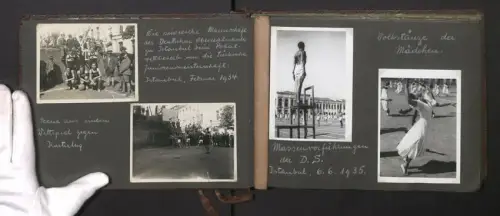 Die siegreiche Mannschaft
der Deutschen Oberrealschule
zu Istanbul beim Pokal-
um die Türkische
Juniorenmeisterschaft.
Istanbul, Februar 1934.
Szene aus unserm
Wettspiel gegen
Massenvorführungen
der D. S.
Istanbul, 6. 6. 1935.
Volkstänze der
Mädchen.